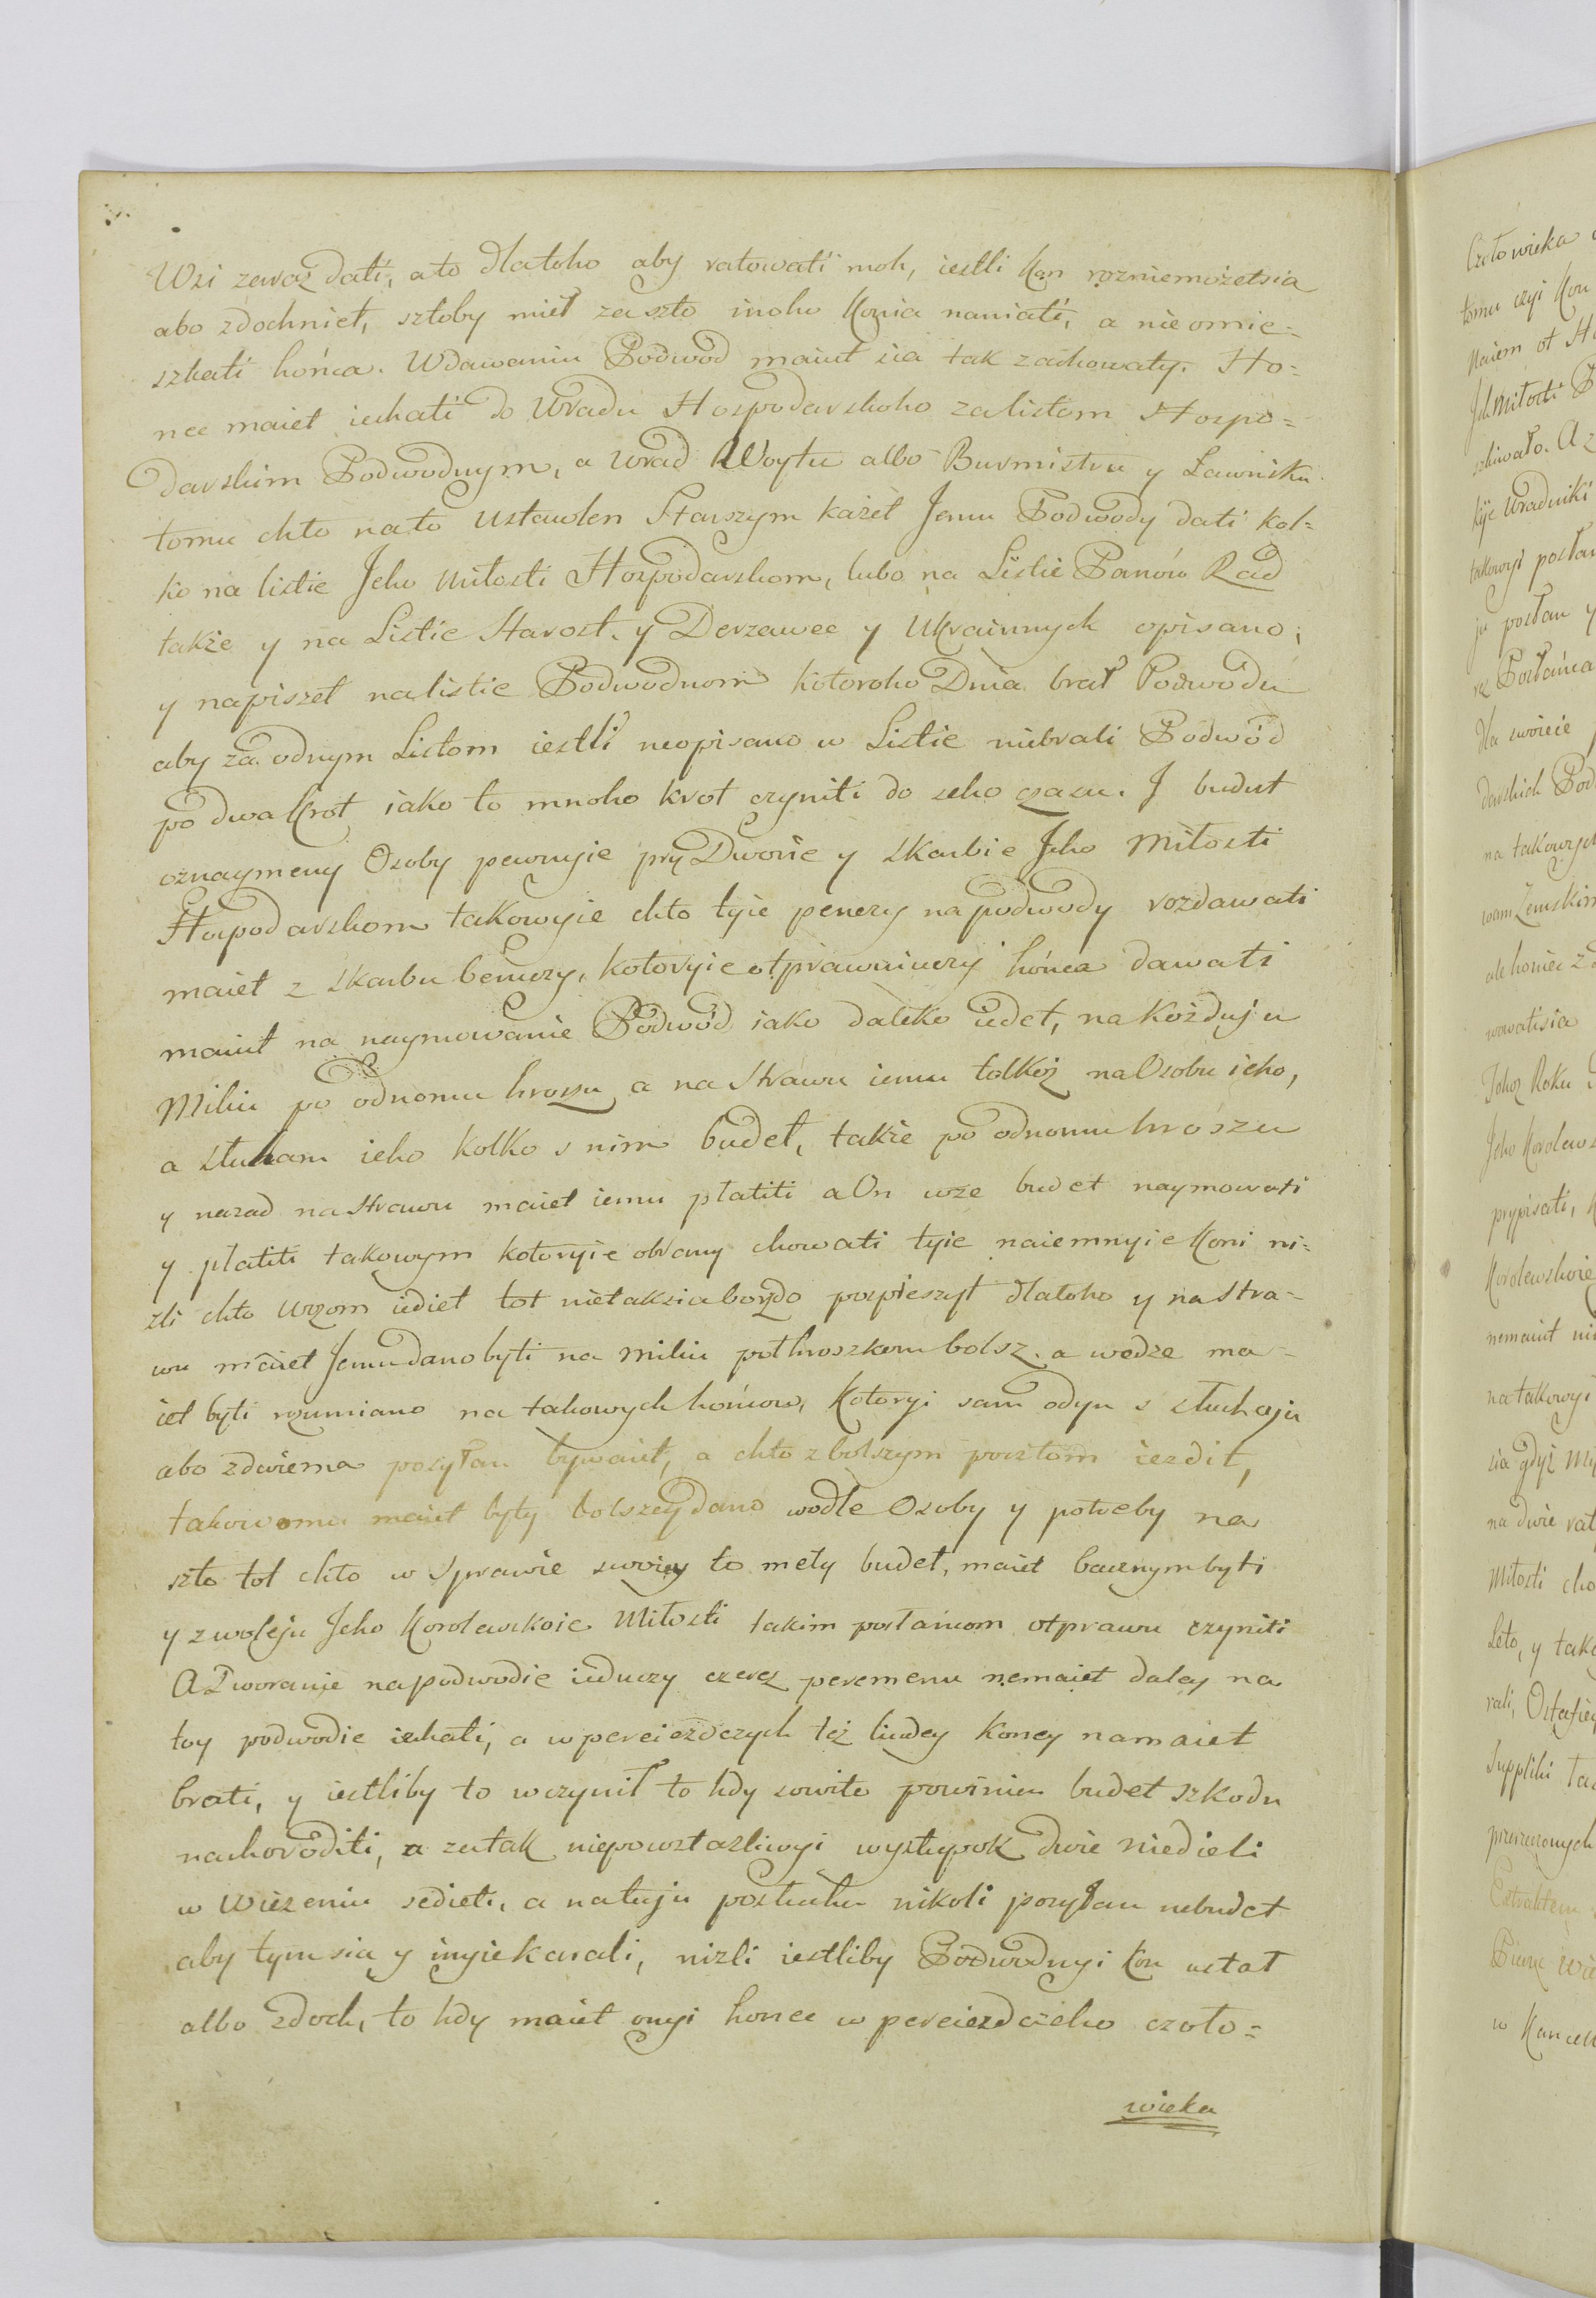 Wsi zaraz dati, a to dlatoho aby ratowati moh, iestli Kon rozniemożetsia
abo zdochniet, sztoby miel za szto inoho Konia naniati, a nieomie=
szkati hońca. Wdawaniu Podwod maiut sia tak zachowaty. Ho=
nec maiet iechati do Uradu Hospodarskoho zalistom Hospo=
darskim Podwodnym, a Urad Woytu albo Burmistru y Lawniku
tomu chto nato Ustawlen Starszym każet Jemu Podwody dati kol=
ko na listie Jeho Miłosti Hospodarskom, lubo na Listie Panów Rad
także y na Listie Starost y Derzawec y Ukrainnych opisano;
y napiszet nalistie Podwodnom kotoroho Dnia brał Podwodu
aby za odnym Listom iestli neopisano w Listie niebrali Podwód
po dwa Krot iako to mnoho krot czyniti do seho czasu. I budut
oznaymeny Osoby pewnyie pry Dworie y Skarbie Jeho Miłosti
Hospodarskom takowyie chto tyie penezy na podwody rozdawati
maiet z Skarbu beruczy, kotoryie otprawuiuczy hońca dawati
maiut na naymowanie Podwód iako daleko iedet, na Kożduju
Miliu po odnomu hroszu a na Strawu iemu tolkoż na Osobu ieho,
a sluham ieho kolko s nim budet, także po odnomu hroszu
y nazad na strawu maiet iemu płatiti a On uże budet naymowati
y platiti takowym kotoryie obrany chowati tyie naiemnyie Koni ni=
żli chto Wozom iediet tot nietaksiaborzdo pospieszyt dlatoho y na Stra=
wu maiet Jemu dano byti na miliu pothroszkom bolsz. a wedze ma=
iet byti rozumiano na takowych hońcow, Kotoryi sam odyn s sluhoju
abo zdwiema posyłan bywaiet, a chto zbolszym pocztom iezdit,
takowomu maiet byty bolszey dano wodle Osoby y potreby na
szto tot chto w Sprawie swoiey to mety budet, maiet bacznym byti
y z woleju Jeho Korolewskoie Miłosti takim posłańcom otprawu czyniti
A Dworanie na podwodie ieduczy czerez peremenu nemaiet daley na
toy podwodie iechati, a w pereiezdczych też liudey Koney namaiet
brati, y iestliby to wczynił to hdy sowito powinien budet szkodu
nahoroditi, a za tak niepowstazliwyi wystupok dwie niedieli
w Wiezeniu sedieti, a natuju posluhu nikoli posyłan nebudet
aby tym sia y inyie karali, nizli iestliby Podwodnyi Kon ustał
albo zdoch, to hdy maiet onyi honec w pereiezdczeho czoło=
wieka